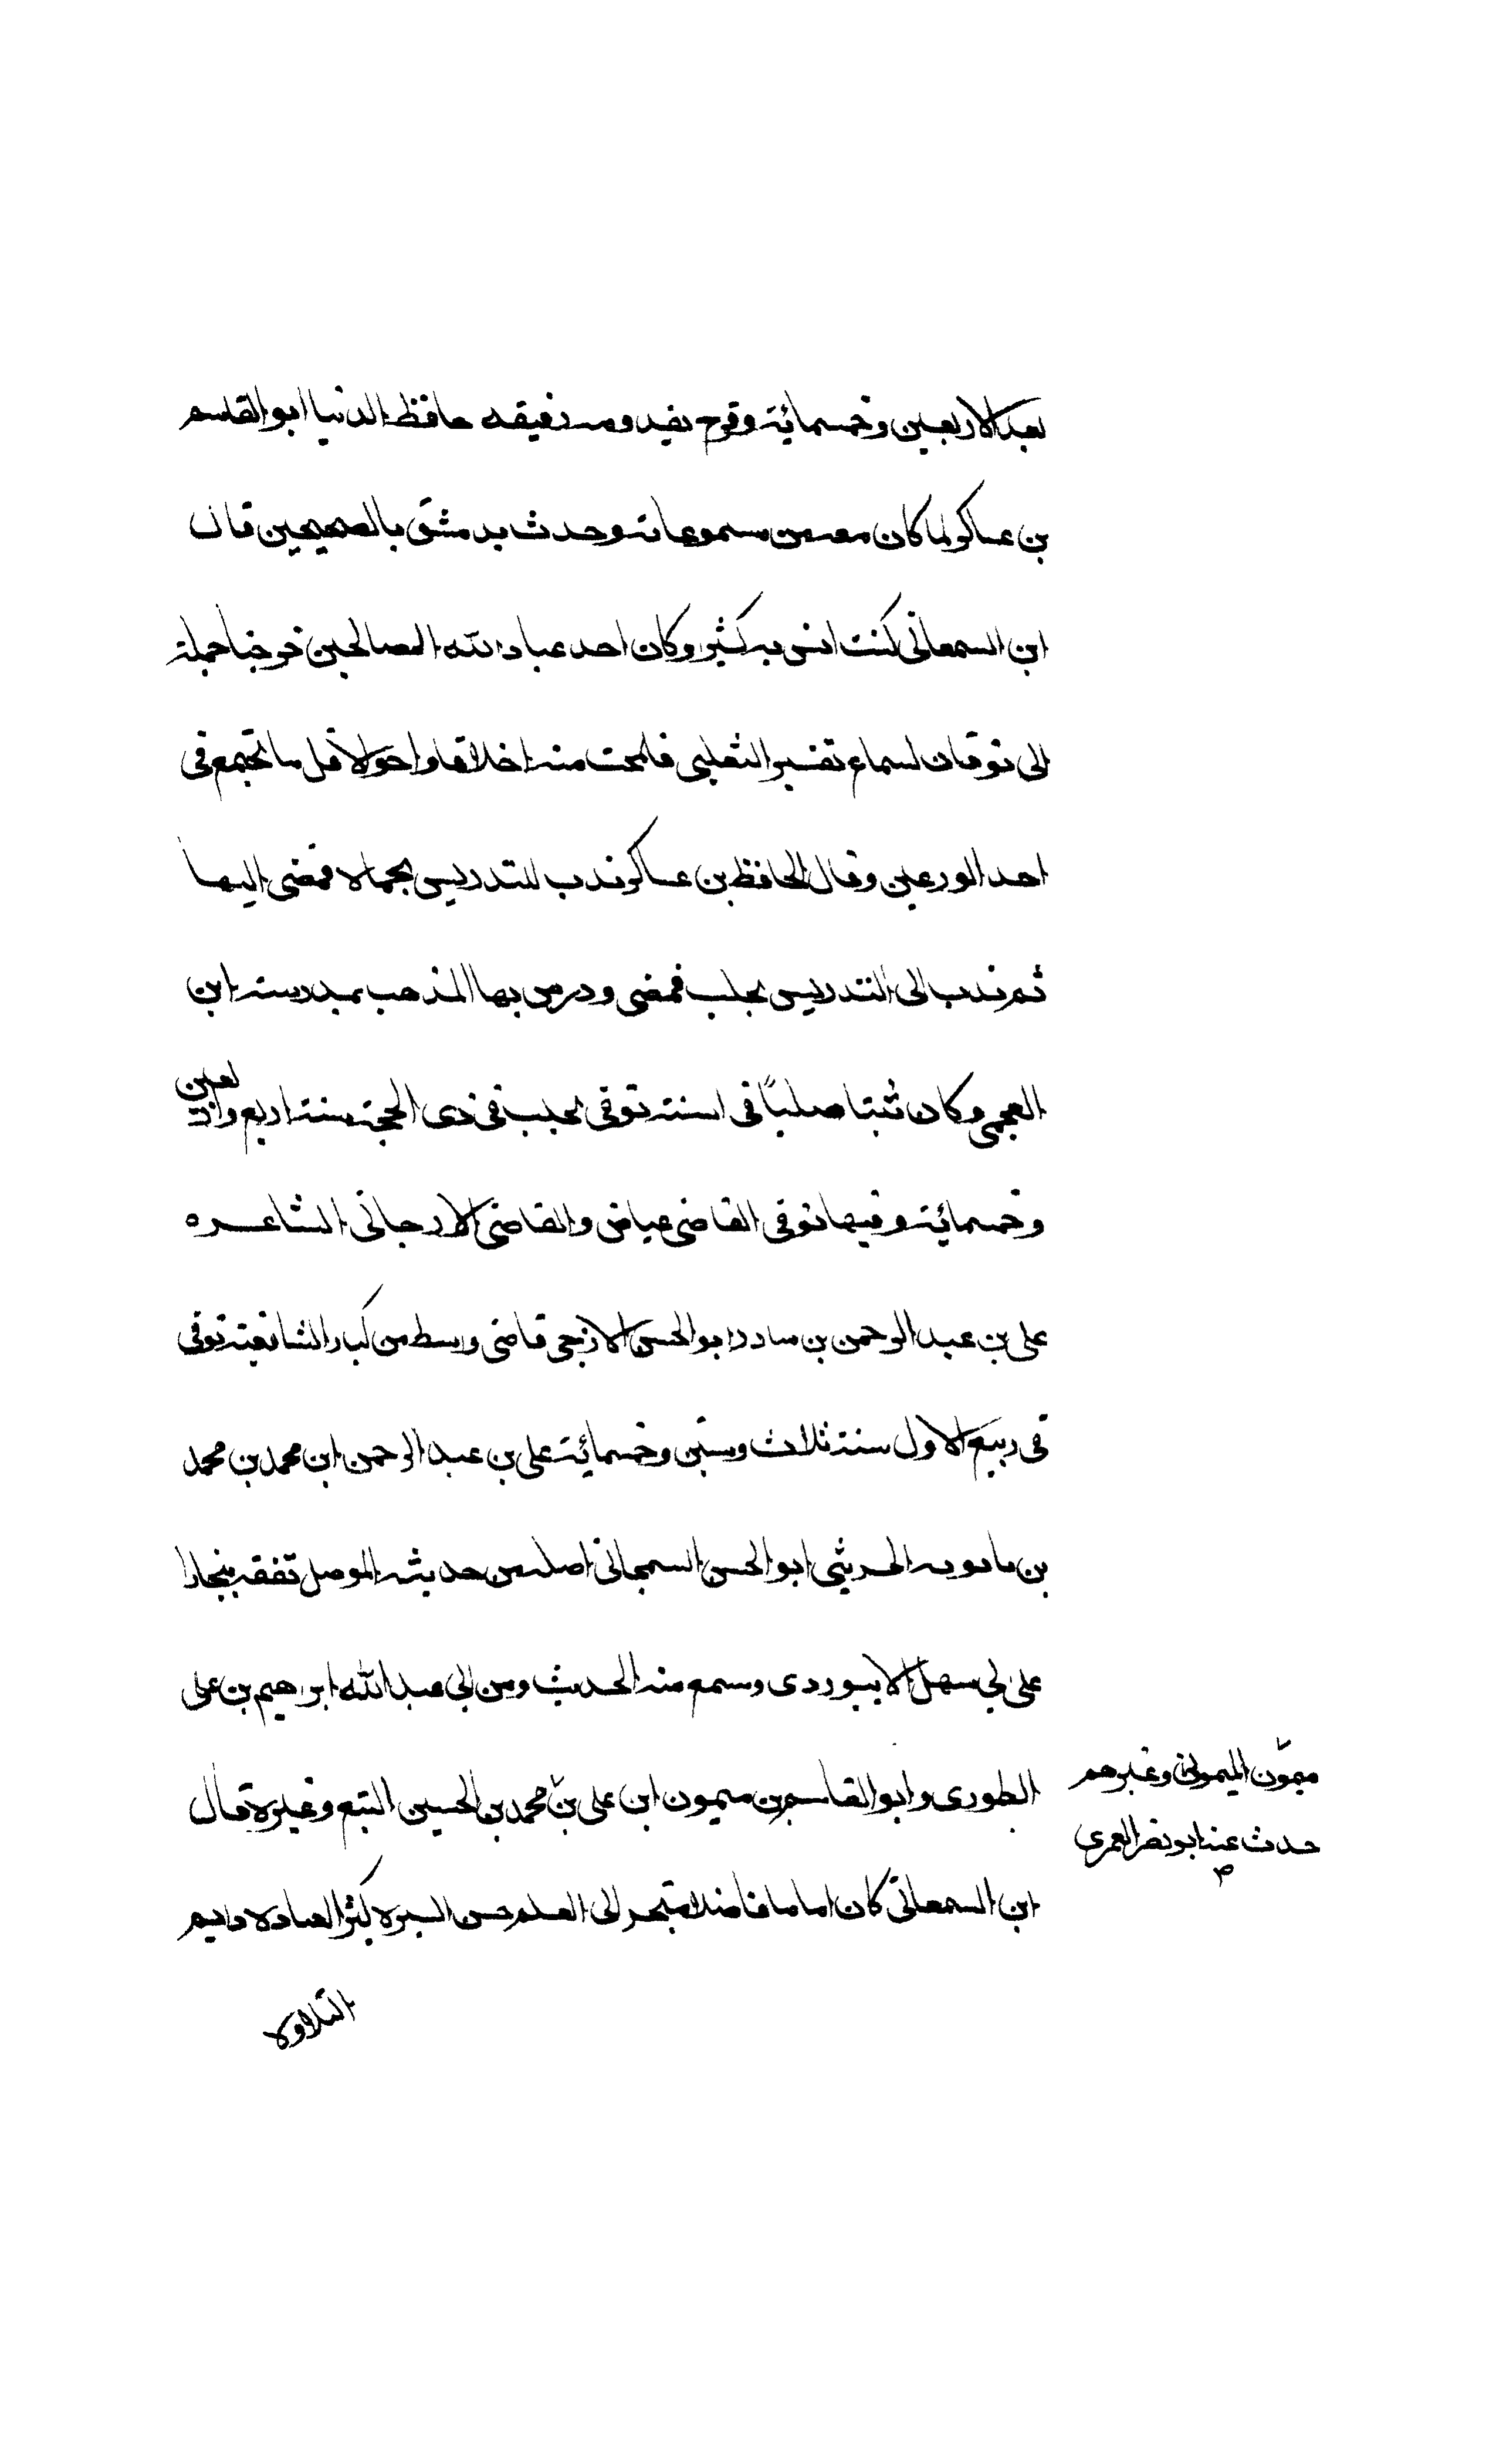 بعد الاربعين وخمسمائة وفرح بقدومه رفيقه حافظ الدنيا ابو القاسم
بن عساكر لما كان معه من مسموعاته وحدث بدمشق بالصحيحين قال
ابن السمعانى كنت انس به كثير وكان احد عباد الله الصالحين خرجنا جملة
الى نوقان لسماع تفسير الثعلبى فلمحت منه اخلاقا واحوالا قل ما تجتمع فى
احد الورعين وقال الحافظ بن عساكر ندب للتدريس بحماه فمضى اليها
ثم ندب الى التدريس بحلب فمضى ودرس بها المذهب بمدرسة ابن
العجمى وكان ثبتا صلبًا فى السنة توفى بحلب فى ذى الحجة سنة اربع واربعين
وخمسمائة وفيها توفى القاضى عياض والقاضى الارجانى الشاعره
على بن عبد الرحمن بن ابو الحسن الازجى قاضى واسط من كبار الشافعية توفى
فى ربيع الاول سنة ثلاث وستين وخمسمائة على بن عبد الرحمن ابن محمد بن محمد
بن الحديثى ابو الحسن السمجانى اصله من حديثة الموصل تفقه ببخارا
على ابى سهل الابيوردى وسمع منه الحديث ومن ابى عبد الله ابرهيم بن على
الطورى وابو القاسم بن ميمون ابن على بن محمد بن الحسين وغيره قال
ميمون الميمونى وغيرهم
حدث عنه ابو نصر العمرى
ص
ابن السمعانى كان اماما فاضلا متبحر الى العلم حسن السيره كثير العباده دايم
التلاوه